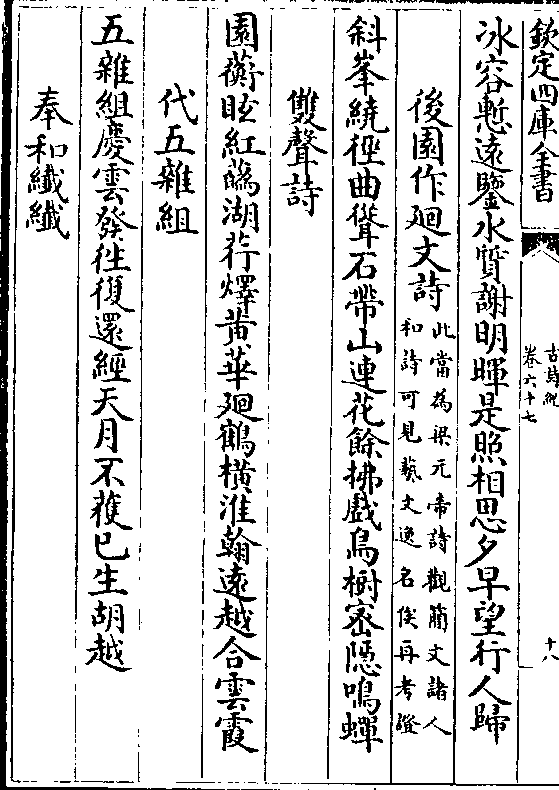 欽定四庫全書
古詩紀
卷六十七
十八
冰容慙遠鑒水質謝明暉是照相思夕早望行人歸
後園作廻文詩
此當為梁元帝詩觀簡文諸人
和詩可見藝文逸名俟再考證
斜峯繞徑曲聳石帶山連花餘拂戲鳥樹密隱鳴蟬
雙聲詩
園蘅眩紅蘤湖荇燡黄華廻鶴橫淮翰遠越合雲霞
代五雜組
五雜組慶雲發往復還經天月不獲已生胡越
奉和纖纖